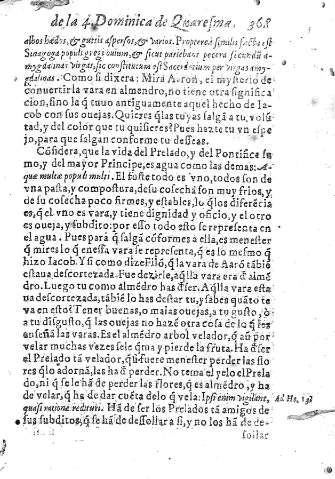 de la 4. Dominica de Quaresma. 368
albos hædos, & guttis aspersos, & varios. Propterea similis factus est
Sinagoga populi gregi ouium, & sicut pariebant pecora secundũ
virgas, sic constitutum est Sacerdotium per virgas
gdalinas: Como si dixera: Mira Aaron, el mysterio de
conuertir la vara en almendro, no tiene otra significa
cion, sino la q̃ tuuo antiguamente aquel hecho de Ia-
cob con sus ouejas. Quieres q̃ las tuyas salgã a tu volũ
tad, y del color que tu quisieres? Pues hazte tu vn espe
jo, para que salgan conforme tu desseas.
Cõsidera, que la vida del Prelado, y del Pontifice su
mo, y del mayor Principe, es agua como las demas: A-
quæ multæ populi multi. El fuste todo es vno, todos son de
vna pasta, y compostura, de su cosecha son muy frios, y
de su cosecha poco firmes, y estables, lo q̃ los diferẽcia
es, q̃ el vno es vara, y tiene dignidad y oficio, y el otro
es oueja, y subdito: por esso todo esto se representa en
el agua. Pues para q̃ salgã cõformes a ella, es menester
q̃ mires lo q̃ en essa vara se representa, q̃ es lo mesmo q̃
hizo Iacob. Y si como dize Filõ, q̃ la vara de Aarõ tãbiẽ
estaua descortezada. Fue dezirle, aq̃lla vara era d̃ almẽ
dro. Luego tu como almẽdro has d̃ ser. Aq̃lla vara esta
ua descortezada, tãbiẽ lo has de star tu, y sabes quãto te
va en esto? Tener buenas, o malas ouejas, a tu gusto, ò
a tu disgusto, q̃ las ouejas no hazẽ otra cosa de lo q̃ les
enseñã las varas. Es el almẽdro arbol velador, q̃ aũ por
velar muchas vezes se le q̃ma y pierde la fruta. Ha d̃ ser
el Prelado tã velador, q̃ si fuere menester perder las flo
res q̃ lo adornã, las ha d̃ perder. No tema el yelo el Prela
do, ni q̃ se le hã de perder las flores, q̃ es almẽdro, y ha
de velar, q̃ ha de dar cuẽta delo q̃ vela: Ipsi enim vigilant, Ad He. 13.
quasi rationẽ reddituri. Hã de ser los Prelados tã amigos de
sus subditos, q̃ se hã de dessollar a si, y no los hã de de-
sollar